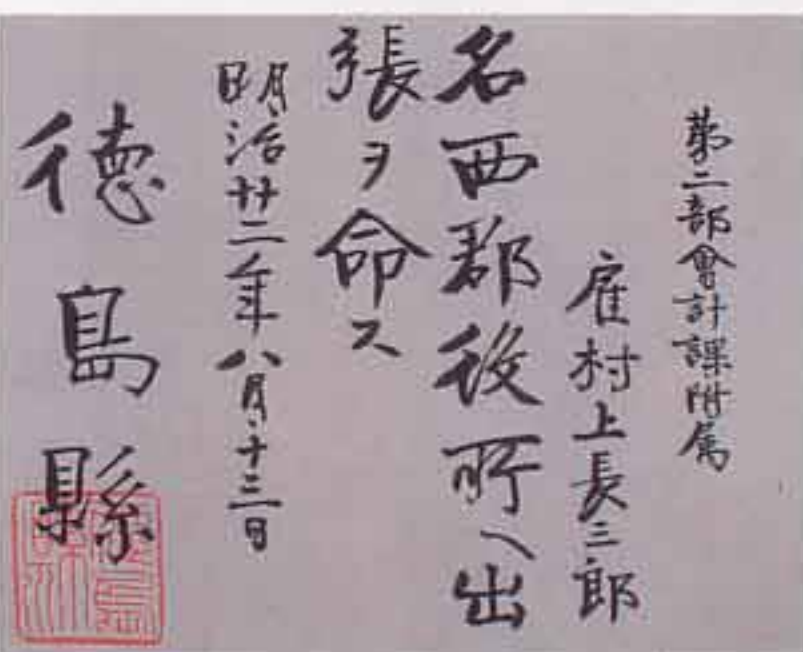 第二部會計課附属
雇村上長三郎
名西郡役所へ出
張ヲ命ス
明治廿二年八月十三日
徳島縣